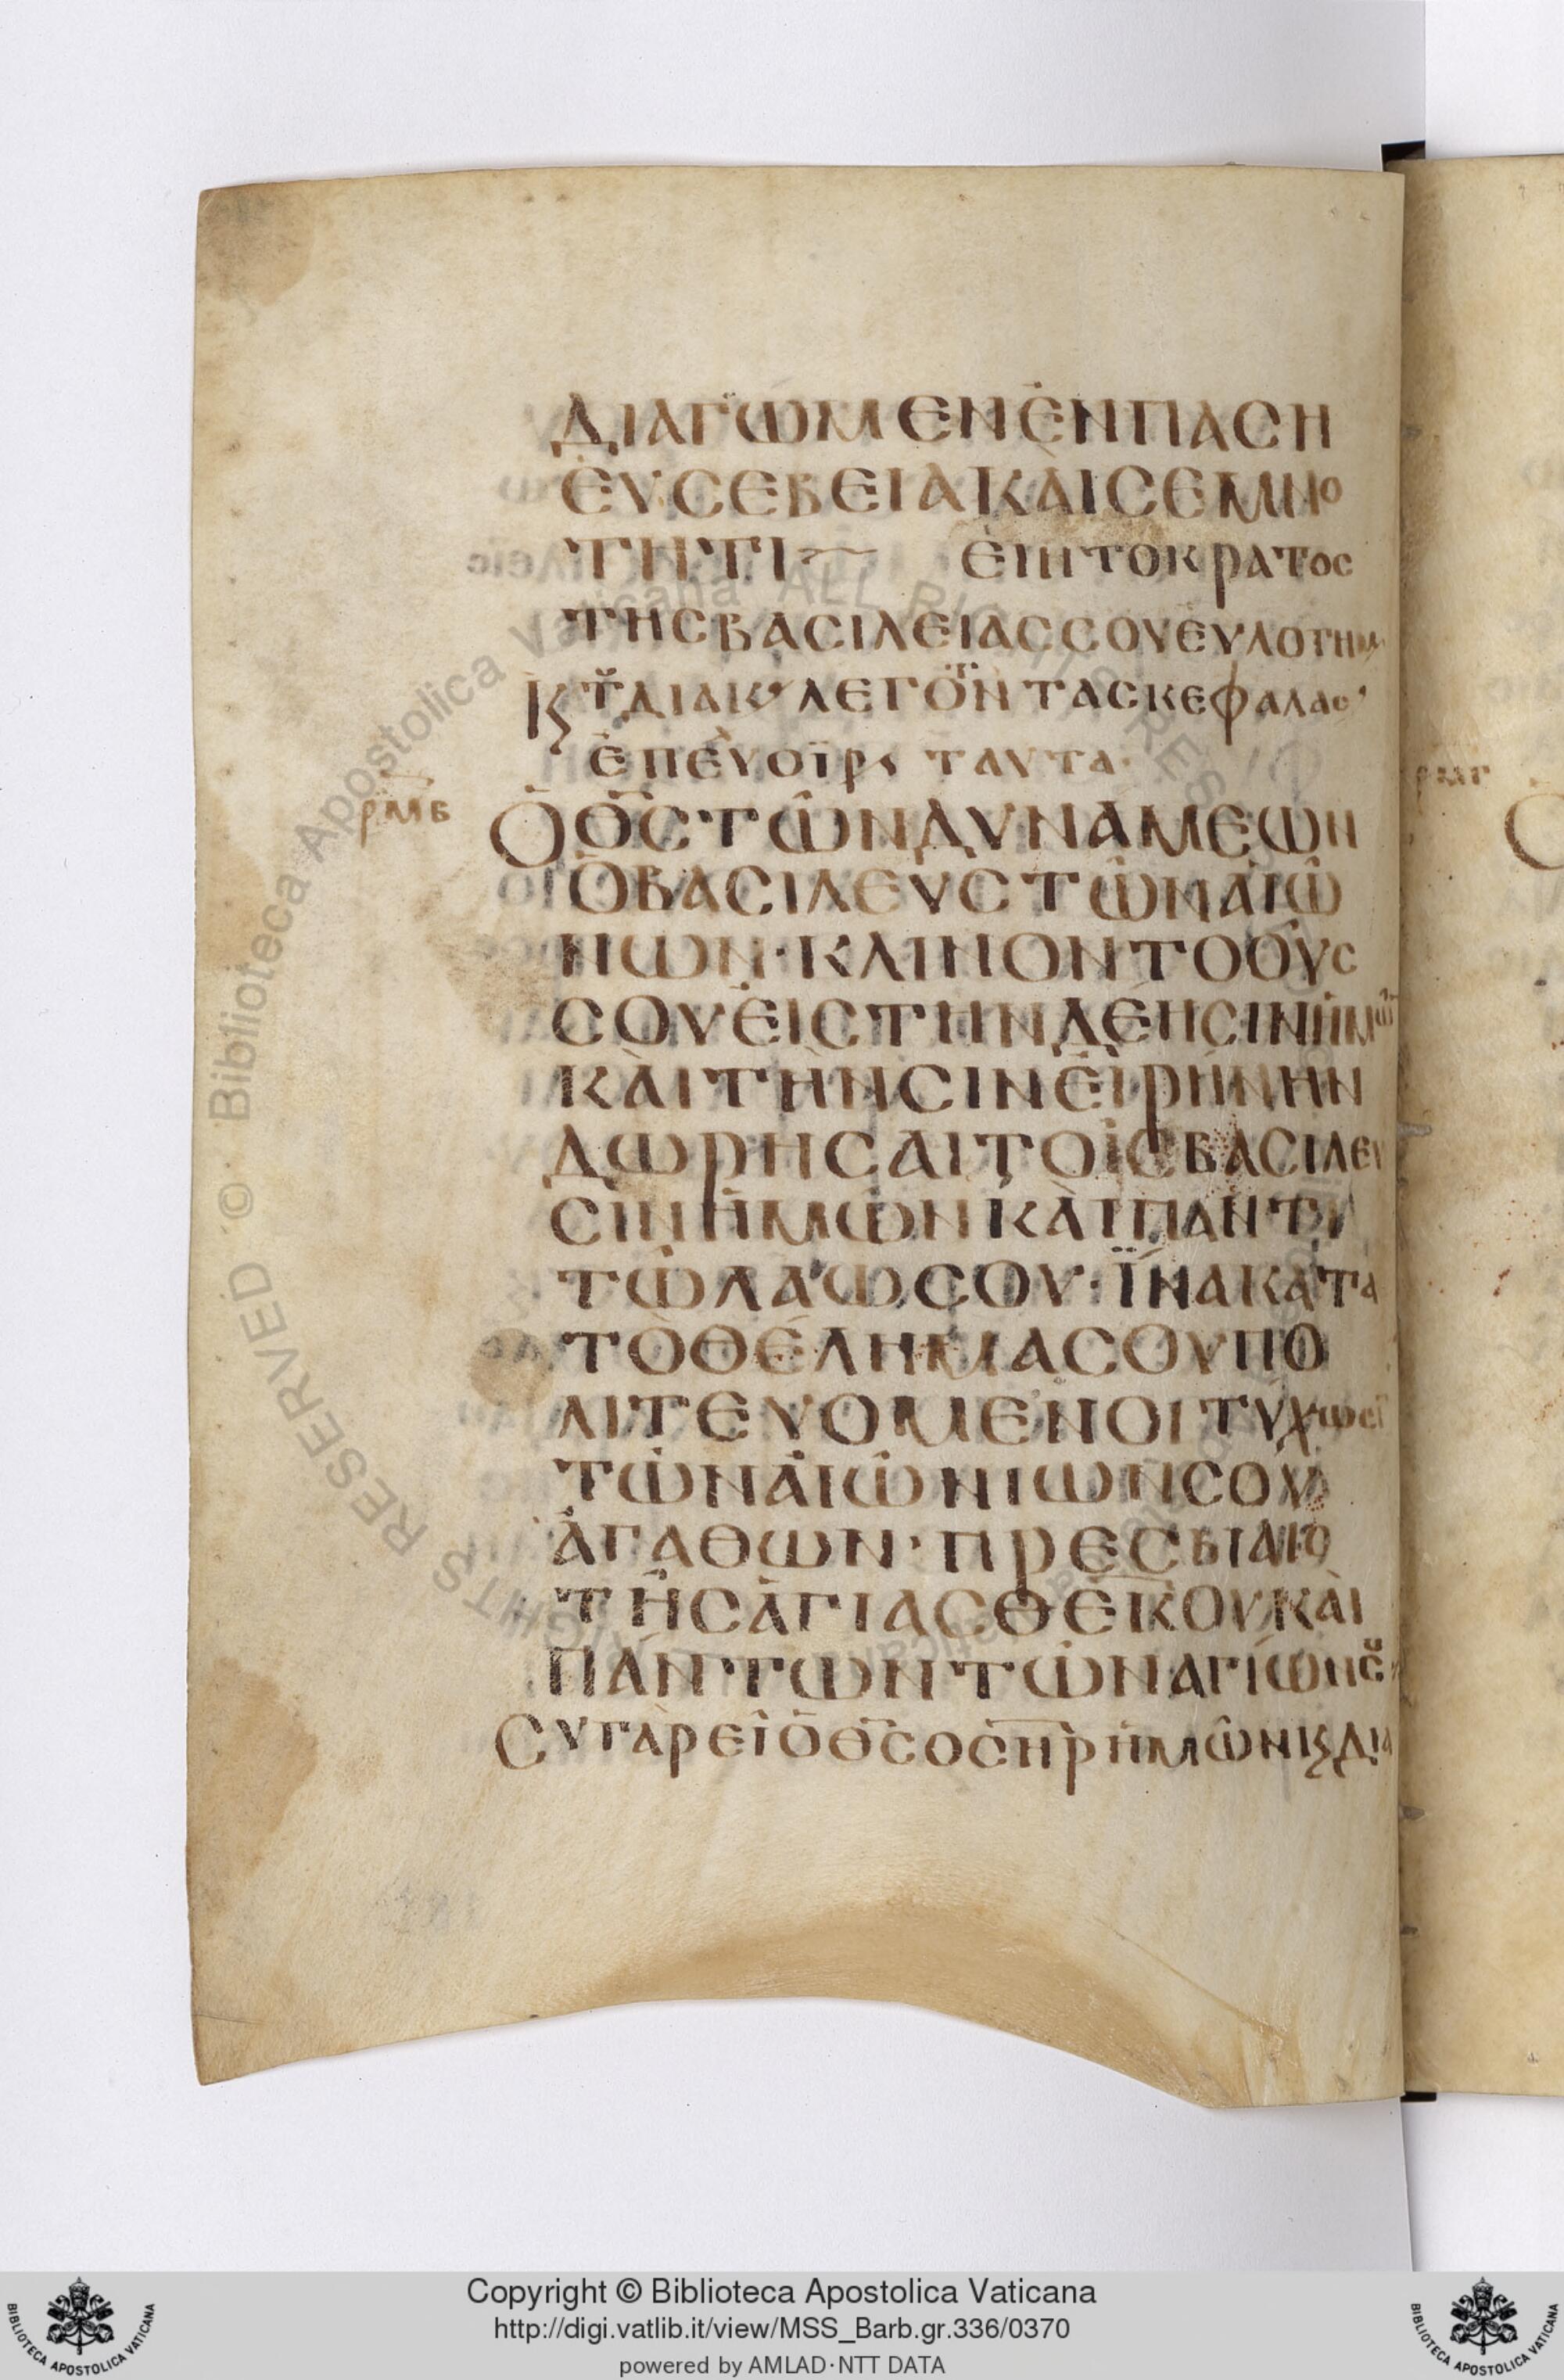 ΔΙΑΓΩΜΕΝ ἘΝ ΠΑCΗ
ἘΥCΕΒΕΙΑ ΚᾺΙ CΕΜΝΟ
ΤΗΤΙ ἘΙΗ ΤΟ ΚΡΑΤΟC
ΤΗC ΒΑCΙΛΕΙΑC CΟΥ ἘΥΛΟΓΗΜ
ΛΕΓΟΝ ΤΑC ΚΕΦΑΛΑC
ΤΑΥΤΑ·
ΡΜΒ
Ὁ ΘC ΤῶΝ ΔΥΝΑΜΕΩΝ
Ὁ ΒΑCΙΛΕΥC ΤῶΝ ΑἸΩ
ΝΩΝ· ΚΛΙΝΟΝ ΤΟ ΟΥC
CΟΥ ἘΙC ΤΗΝ ΔΕΗCΙΝ ἩΜῶ
ΚᾺΙ ΤῊΝ CῊΝ ἘΙΡΗΝΗΝ
ΔΩΡΗCΑΙ ΤΟῙC ΒΑCΙΛΕΥ
CΙΝ ἩΜῶΝ ΚᾺΙ ΠΑΝΤΙ
Τῶ ΛΑῶ CΟΥ· ΪΝΑ ΚΑΤΑ
ΤῸ ΘΕΛΗΜΑ CΟΥ ΠΟ
ΛΙΤΕΥΟΜΕΝΟΙ ΤΥΧΩCΙ
ΤῶΝ ΑἸΩΝΙΩΝ CΟΥ
ἈΓΑΘΩΝ· ΠΡΕCΒΙΑΙC
ΤΗC ἈΓΙΑC ΘΕΚΟΥ ΚᾺΙ
ΠΑΝΤΩΝ ΤῶΝ ΑΓΙΩΝ C
CΥ ΓᾺΡ ΕΙ Ὁ ΘC Ὁ CΗΡ ἩΜῶΝ Κϛ ΔΙΑ
ΡΜΓ
Copyright © Biblioteca Apostolica Vaticana
http://digi.vatlib.it/view/MSS_Barb.gr.336/0370
powered by AMLAD·NTT DATA
BIBLIOTECA APOSTOLICA VATICANA
BIBLIOTECA APOSTOLICA VATICANA